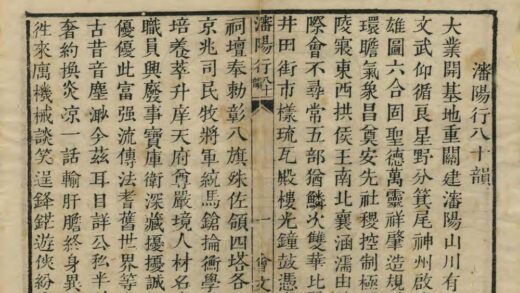 瀋陽行八十韻
大業開基地重關建瀋陽山川有
文武仰循良星野分箕尾神州啟
雄圖六合固聖德萬靈祥肇造規
環瞻氣象昌奠安先社稷控制極
陵寢東西拱侯王南北襄涵濡由
際會不尋常五部猶鱗次雙華比
井田街市樣琉瓦殿樓光鐘鼓憑
瀋陽行八十韻 一 會文
祠壇奉勅彰八旗殊佐領四塔各
京兆司民牧將軍統馬鎗掄衡學
培養萃升庠天府尊嚴境人材名
職員興廢事寶庫衛深藏擾擾誠
優優此富强流傳法耆舊世界等
古昔音塵渺今茲耳目詳公私半
奢約換炎凉一話輸肝膽終身異
徃來厲機械談笑逞鋒鋩遊俠紛